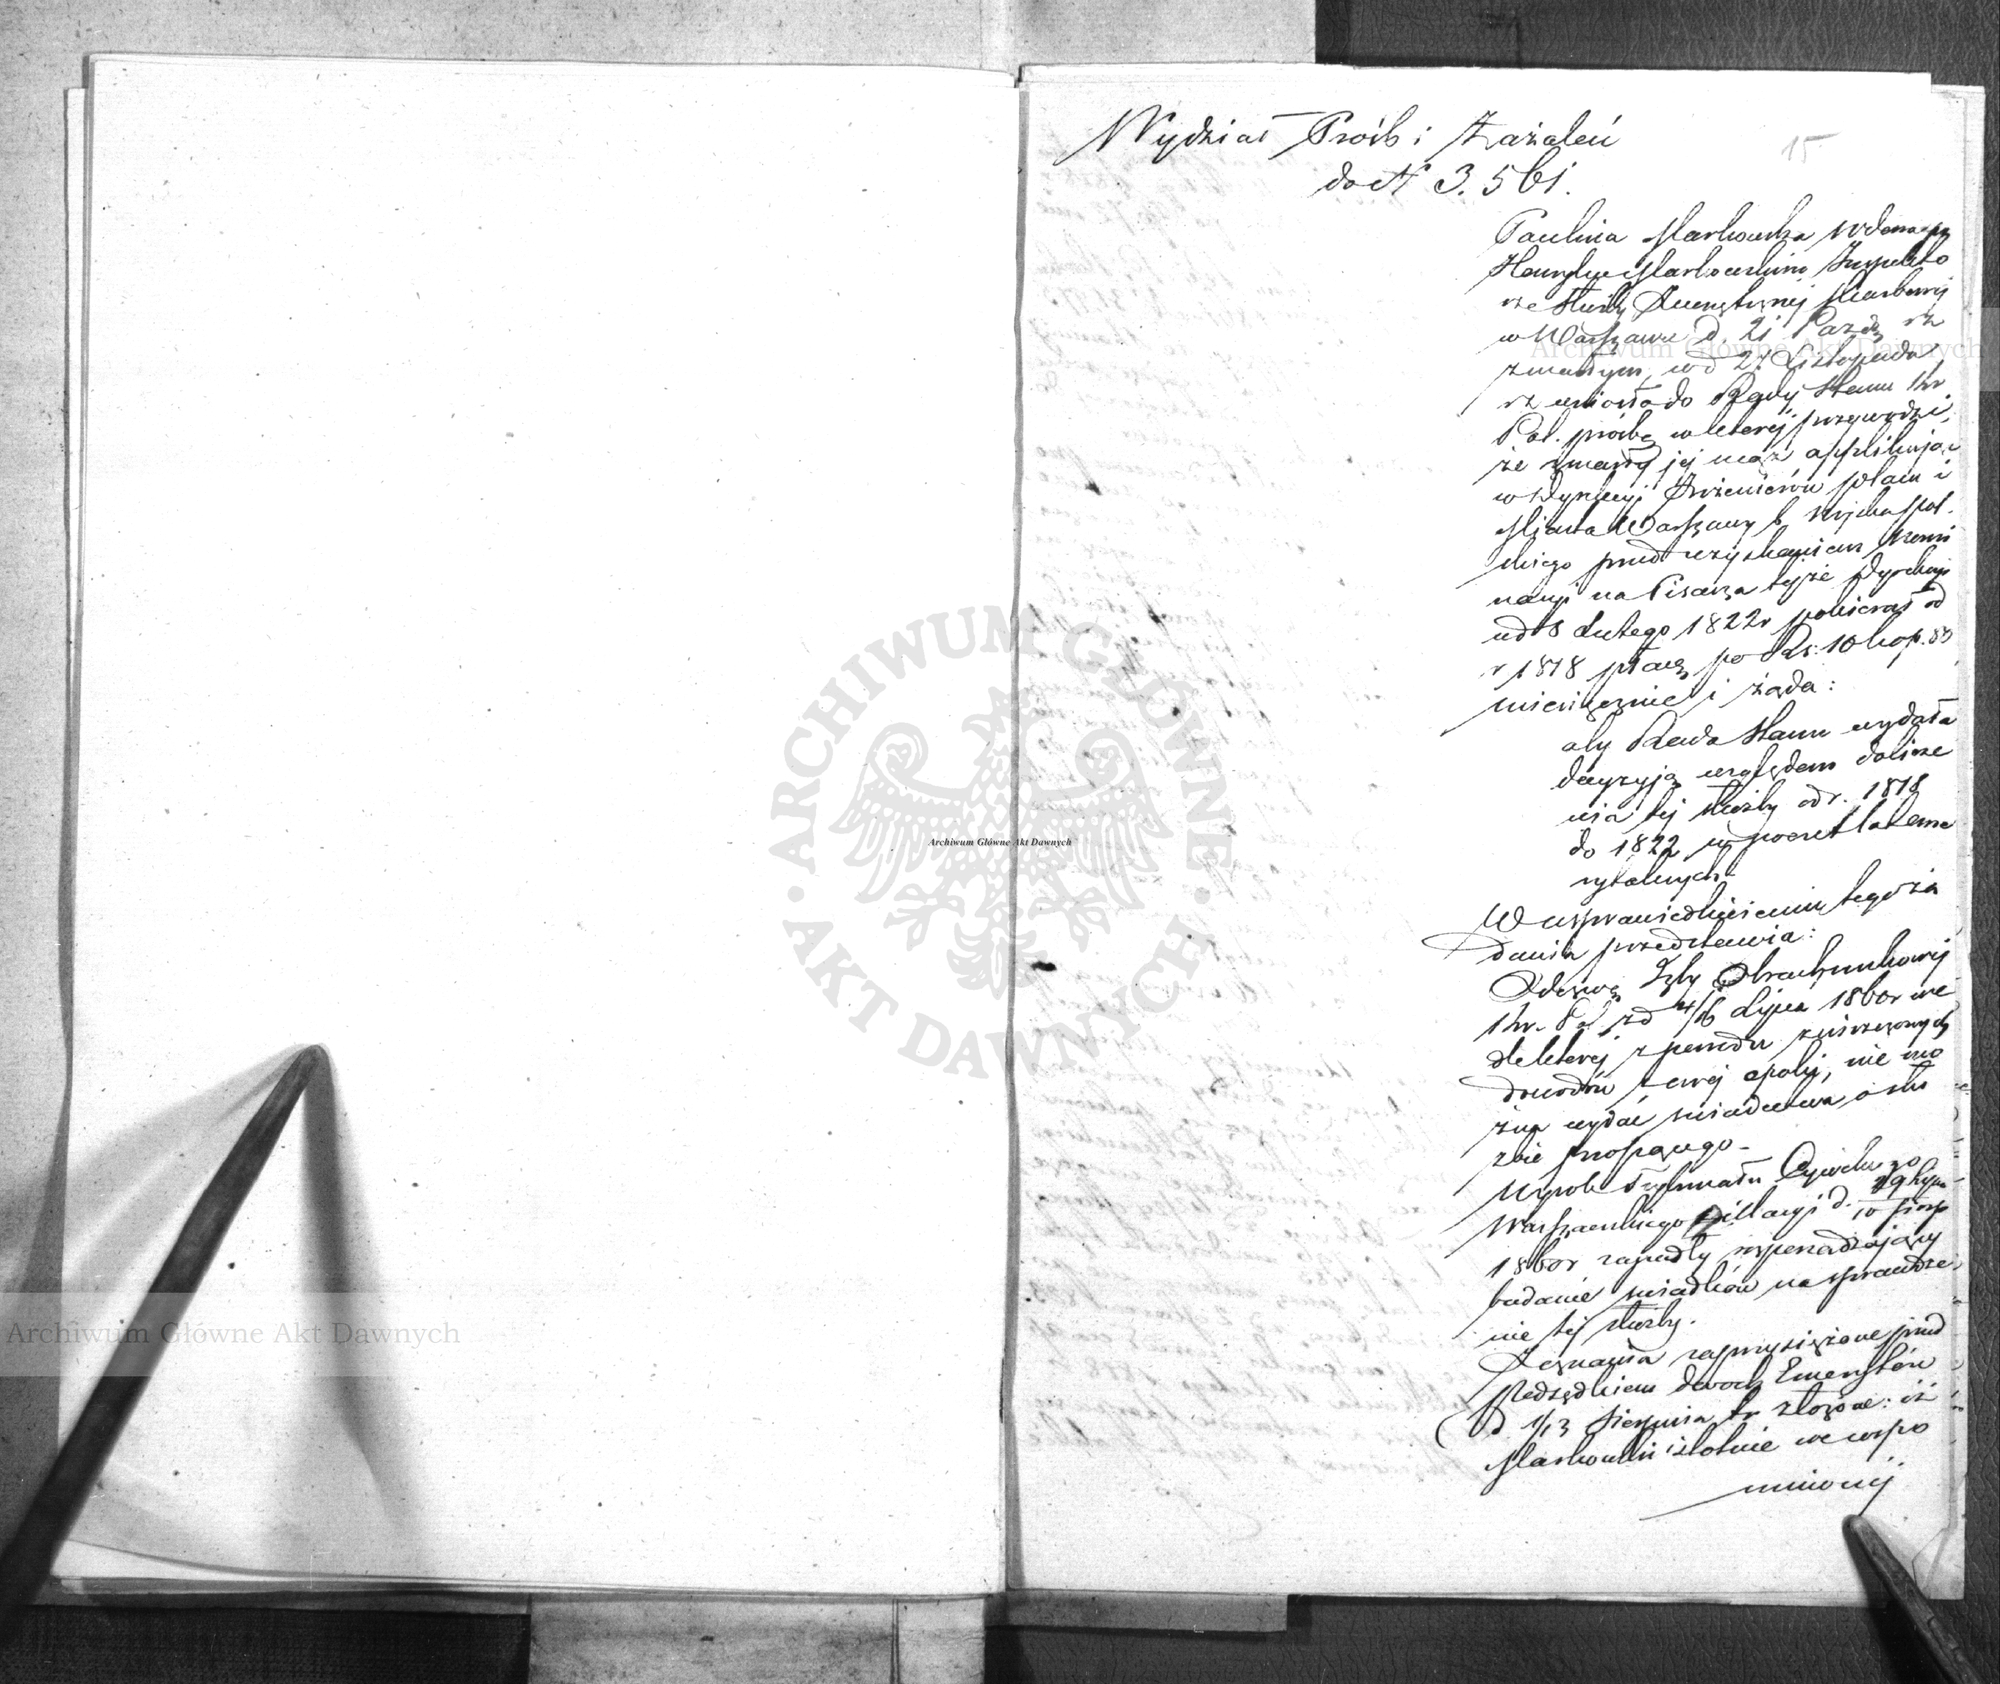 15
Wydział Próśb i Zażaleń
do N 3.561.
Paulina Markowska wdowa po
Henryku Markowskim Inspekto
rze Służby Skarbowej
w Warszawie d. 21 Paźdz rb
zmarłym, w d 21 Listopada
rb wniosła do Rady Stanu Kr
Pol. prośbę w której przywodzi,
że zmarły jej mąż applikując
w Dyrekcyi Inżenierów placu i
Miasta Warszawy b. wojska pol-
skiego przed uzyskaniem nomi
nacyi na Pisarza tejże Dyrekcyi
od 8 Lutego 1822r pobierał od
r 1818 płacę po Rs: 10 kop. 83
miesięcznie i żąda:
aby Rada Stanu wydała
decyzyją względem dolicze
nia tej służby od r. 1818
do 1822 w poczet lat eme
rytalnych.
W usprawiedliwieniu tego żą
dania przedstawia:
Odezwę Izby Obrachunkowej
Kr. Pol z d 4/16 Lipca 1860r we
dle której z powodu zniszczonych
dowodów z owej epoki, nie mo
żna wydać świadectwa o słu
żbie proszącego-
Wyrok Trybunału Cywilnego
Warszawskiego d. 29 Lipca
10 Sierp
1860r zapadły rozporządzający
badanie świadków na sprawdze
nie tej służby.
Zeznania zaprzysiężone przed
Podsędkiem dwóch Emerytów
d. 1/13 Sierpnia tr złożone: iż
Markowski istotnie we wspo
mnionej
Archiwum Główne Akt Dawnych
Archiwum Główne Akt Dawnych
ARCHIWUM GŁÓWNE AKT DAWNYCH
Archiwum Główne Akt Dawnych